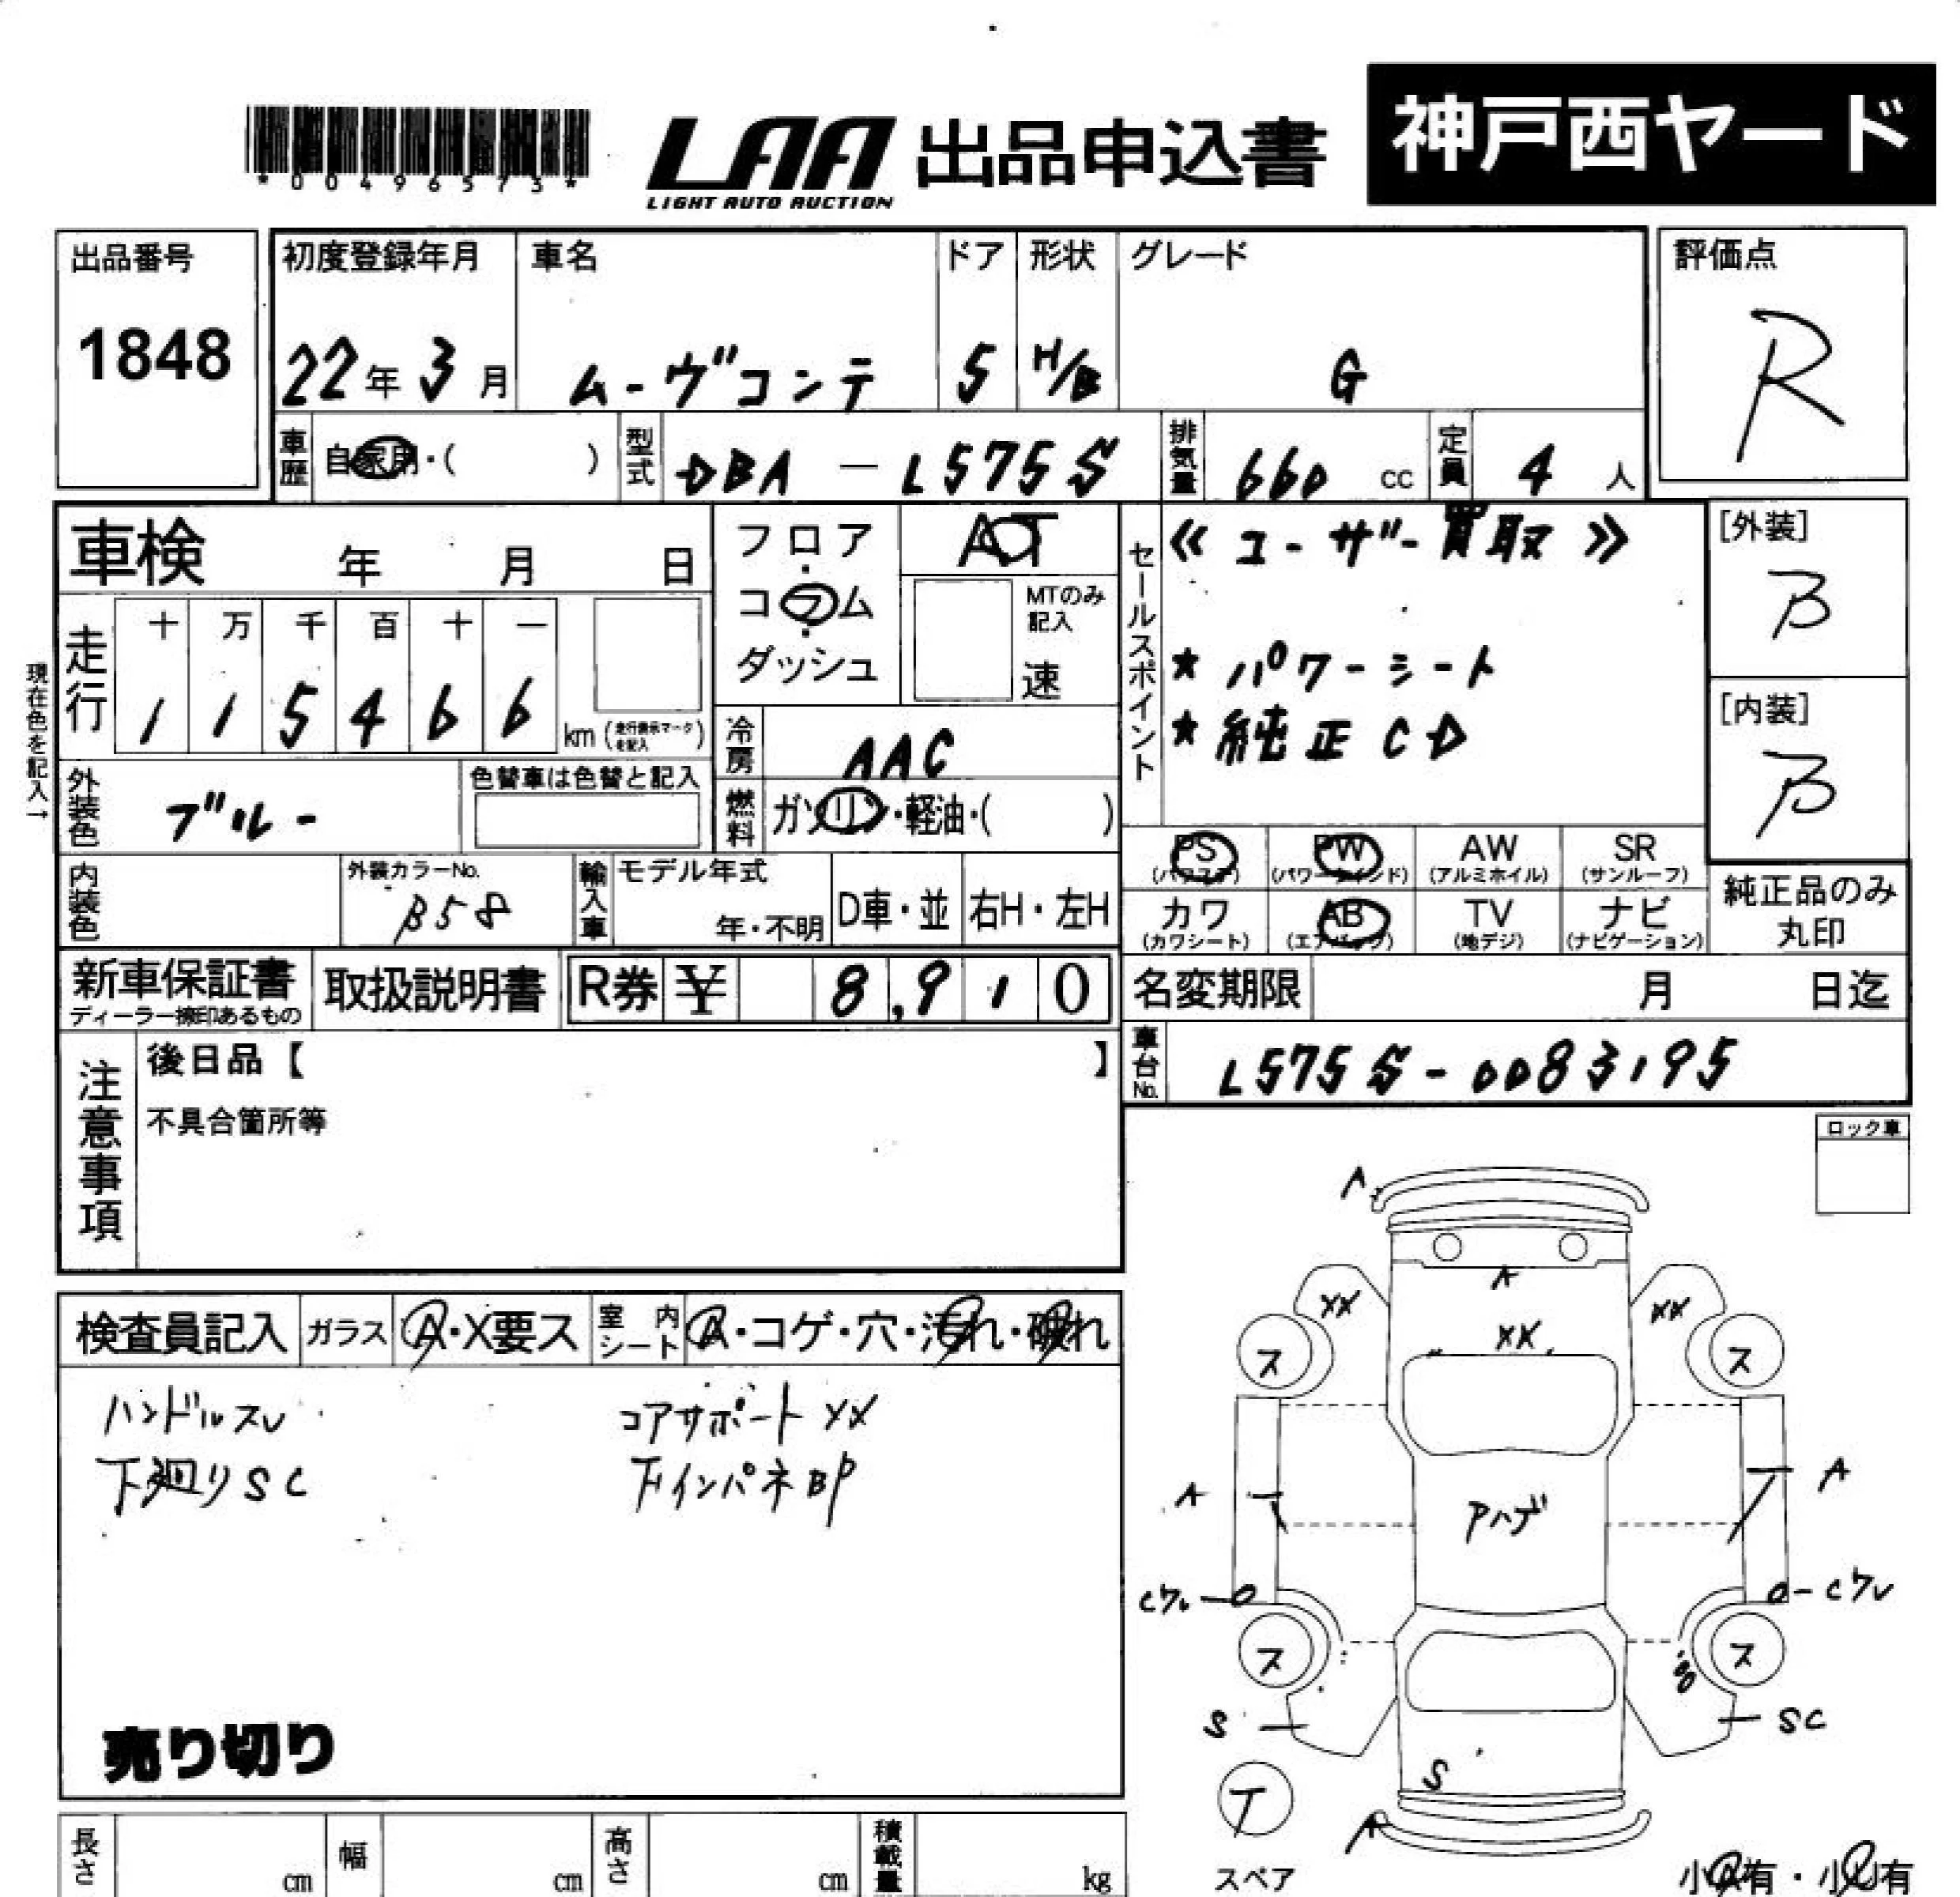 *00496573*
LAA
LIGHT AUTO AUCTION
出品申込書
神戸西ヤード
出品番号
1848
初度登録年月
22年3月
車名
ムーヴコンテ
ドア
5
形状
H/B
グレード
G
評価点
R
車歴
自家用・( )
型式
DBA - L575S
排気量
660 cc
定員
4 人
車検 年 月 日
現在色を記入→
走行
十 万 千 百 十 一
1 1 5 4 6 6
km (走行表示マークを記入)
フロア
・
コラム
・
ダッシュ
AT
MTのみ記入
速
冷房
AAC
燃料
ガソリン・軽油・( )
セールスポイント
《ユーザー買取》
★パワーシート
★純正CD
[外装]
B
[内装]
B
外装色
ブルー
色替車は色替と記入
内装色
外装カラーNo.
B58
輸入車
モデル年式
年・不明
D車・並
右H・左H
PS
(パワステ)
PW
(パワーウインド)
AW
(アルミホイル)
SR
(サンルーフ)
カワ
(カワシート)
AB
(エアバック)
TV
(地デジ)
ナビ
(ナビゲーション)
純正品のみ
丸印
新車保証書
ディーラー捺印あるもの
取扱説明書
R券 ¥ 8,910
名変期限 月 日迄
車台No.
L575S-0083195
注意事項
後日品【 】
不具合箇所等
ロック車
検査員記入
ガラス
A・X要ス
室内シート
A・コゲ・穴・汚れ・破れ
ハンドルスレ
コアサポートXX
下廻りSC
下インパネBP
売り切り
A
A
XX
XX
XX
ス
ス
A
A
Pハゲ
Cワレ
Cワレ
ス
ス
S
SC
S
T
A
スペア
小A有・小U有
長さ cm
幅 cm
高さ cm
積載量 kg